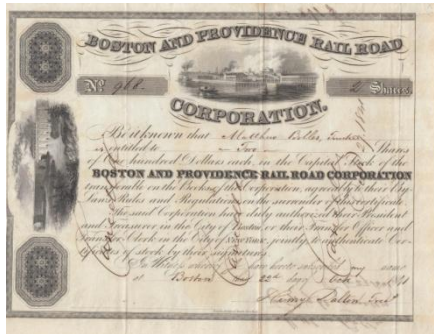 BOSTON AND PROVIDENCE RAIL ROAD
No. 968. 2 Shares
CORPORATION.
Be it known that Matthew Bolles, Trustee
is entitled to Two Shares
of One hundred Dollars each, in the Capital Stock of the
BOSTON AND PROVIDENCE RAIL ROAD CORPORATION
transferable on the Books of the Corporation, agreeably to their By-
Laws Rules and Regulations, on the surrender of this certificate.
The said Corporation have duly authorized their President
and Treasurer in the City of Boston, or their Transfer Officer and
Transfer Clerk in the City of New York, jointly to authenticate Cer-
tificates of stock by their signatures.
In Witness whereof have hereto subscribed my name
at Boston 22d day
Henry Treasr